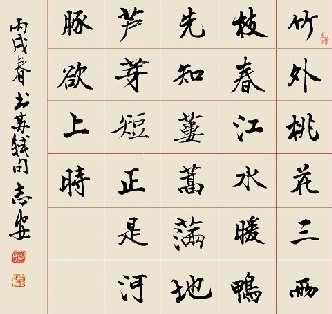 竹外桃花三兩
枝春江水暖鴨
先知蔞蒿滿地
芦芽短正是河
豚欲上時
丙戌春书苏轼句志安